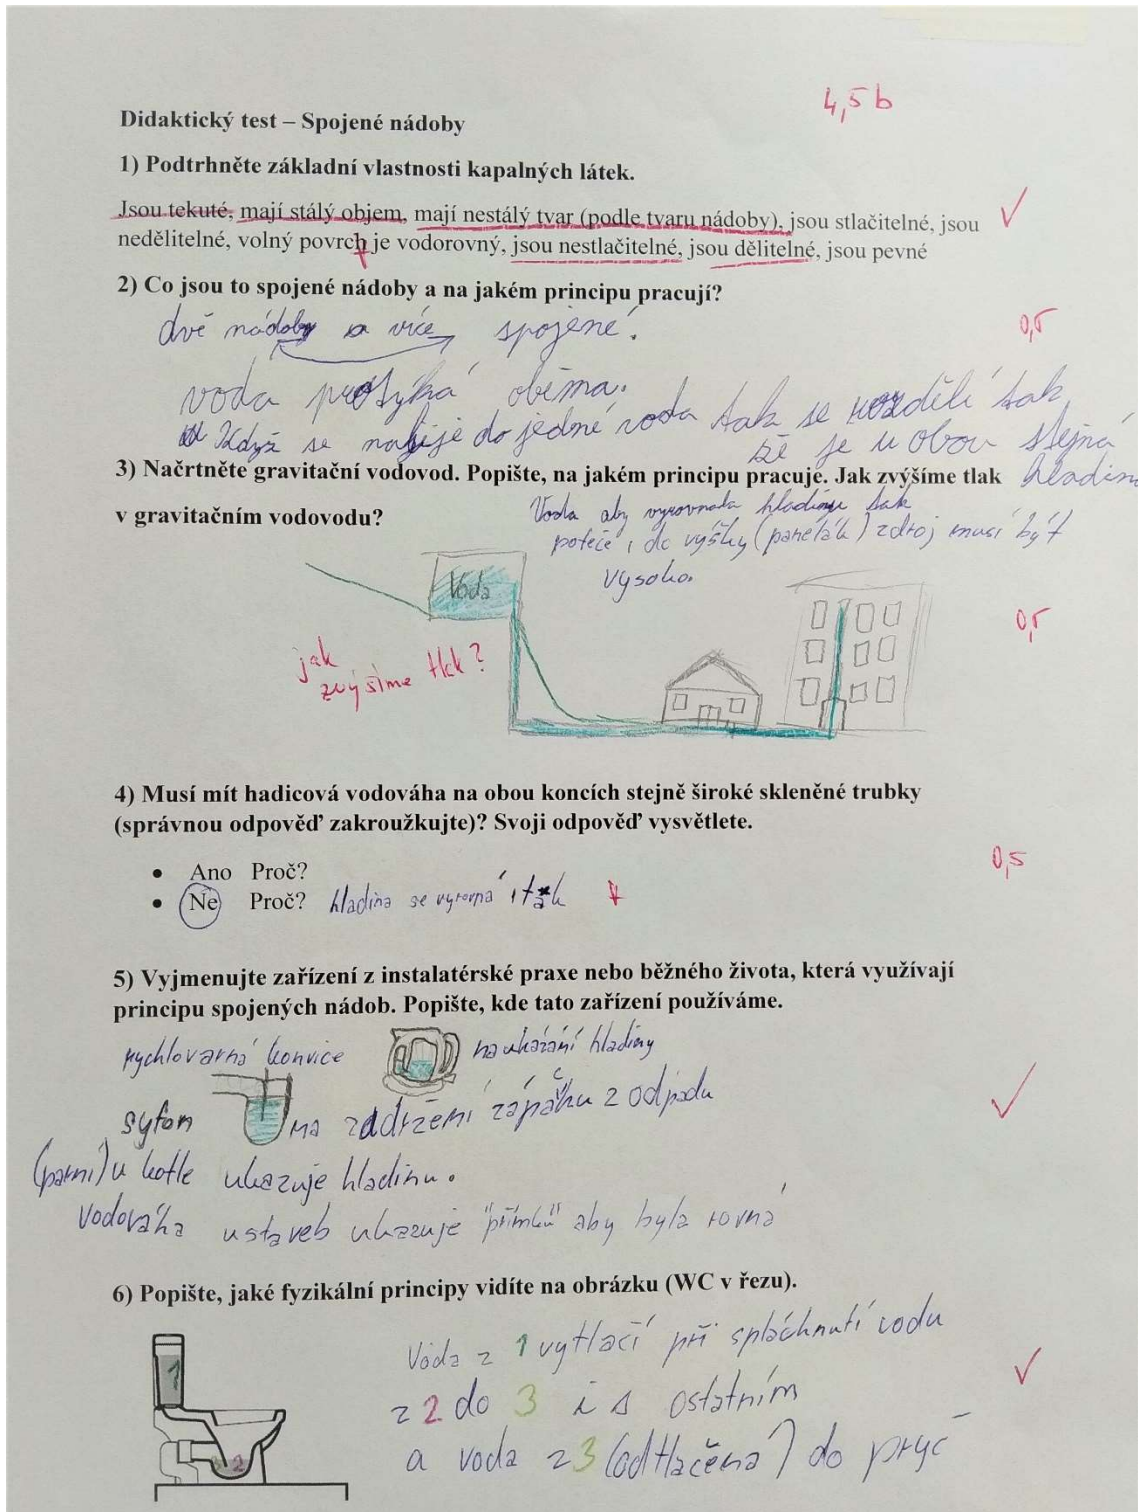 4,5 b
Didaktický test – Spojené nádoby
1) Podtrhněte základní vlastnosti kapalných látek.
Jsou tekuté, mají stálý objem, mají nestálý tvar (podle tvaru nádoby), jsou stlačitelné, jsou
nedělitelné, volný povrch je vodorovný, jsou nestlačitelné, jsou dělitelné, jsou pevné
2) Co jsou to spojené nádoby a na jakém principu pracují?
dvě nádoby a více spojené.
0,5
voda protýká oběma.
Když se nalije do jedné voda tak se rozdělí tak
že je u obou stejná
hladina
3) Načrtněte gravitační vodovod. Popište, na jakém principu pracuje. Jak zvýšíme tlak
v gravitačním vodovodu?
Voda aby vyrovnala hladinu tak
poteče i do výšky (panelák) zdroj musí být
vysoko.
Voda
0,5
jak
zvýšíme tlak?
4) Musí mít hadicová vodováha na obou koncích stejně široké skleněné trubky
(správnou odpověď zakroužkujte)? Svoji odpověď vysvětlete.
• Ano Proč?
0,5
• Ne Proč? hladina se vyrovná i tak
5) Vyjmenujte zařízení z instalatérské praxe nebo běžného života, která využívají
principu spojených nádob. Popište, kde tato zařízení používáme.
rychlovarná konvice na ukázání hladiny
syfon na zadržení zápachu z odpadu
(parní) u kotle ukazuje hladinu.
Vodováha u staveb ukazuje "přímku" aby byla rovná
6) Popište, jaké fyzikální principy vidíte na obrázku (WC v řezu).
Voda z 1 vytlačí při spláchnutí vodu
z 2 do 3 i s ostatním
a voda z 3 (odtlačena) do pryč
1
3 2